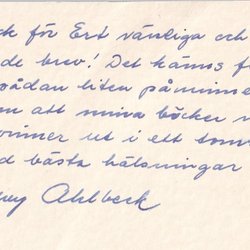 ck för Ert vänliga och
de brev! Det känns f
sådan liten påminne
om att mina böcker n
ommer ut i ett tom
d bästa hälsningar
ny Ahlbeck